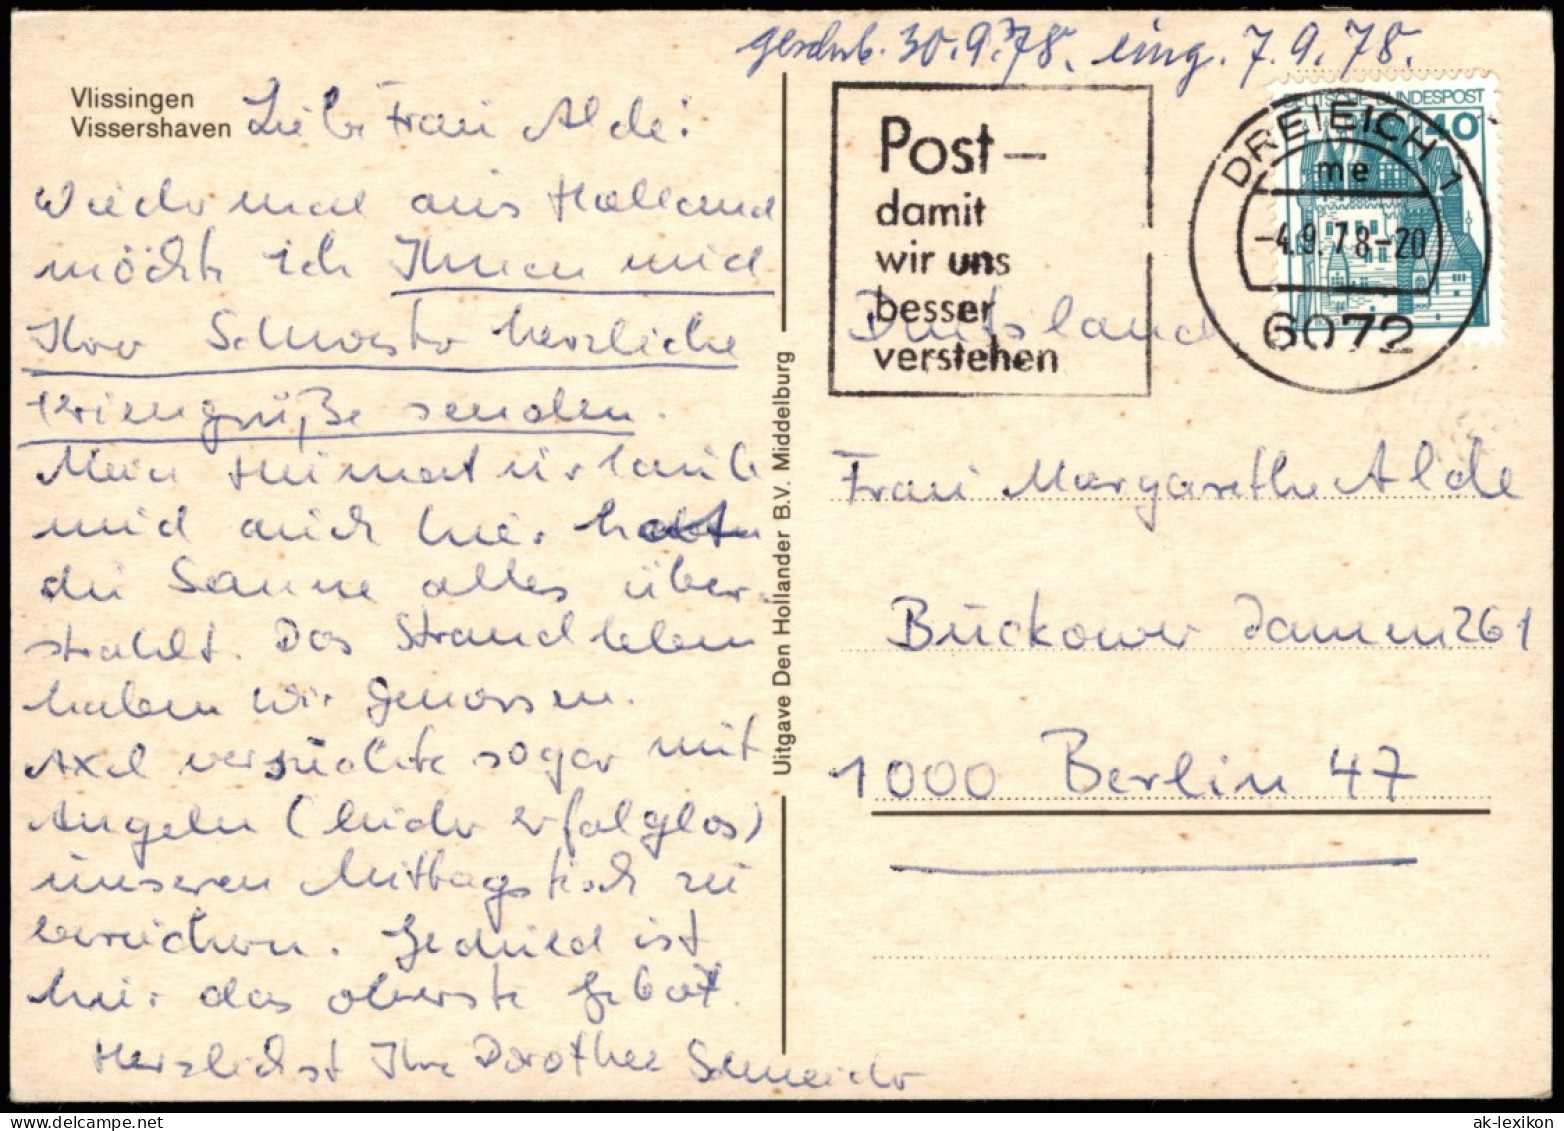 geschrb. 30.9.78. eing. 7.9.78.
Vlissingen
Vissershaven
Liebe Frau Alde!
Wieder mal aus Holland
möchte ich Ihnen und
Ihrer Schwester herzliche
Feriengrüße senden.
Mein Heimaturlaub
und auch hier hat
die Sonne alles über-
strahlt. Das Strandleben
haben wir genossen.
Axel versuchte sogar mit
Angeln (leider erfolglos)
unseren Mittagstisch zu
bereichern. Geduld ist
hier das oberste Gebot.
Herzlichst Ihre Dorothee Schneider
Uitgave Den Hollander B.V. Middelburg
Post –
damit
wir uns
besser
verstehen
DEUTSCHE BUNDESPOST
40
DREIEICH 1
me
-4.9.78-20
6072
Deutsland
Frau Margarethe Alde
Buckower Damm 261
1000 Berlin 47
ak-lexikon